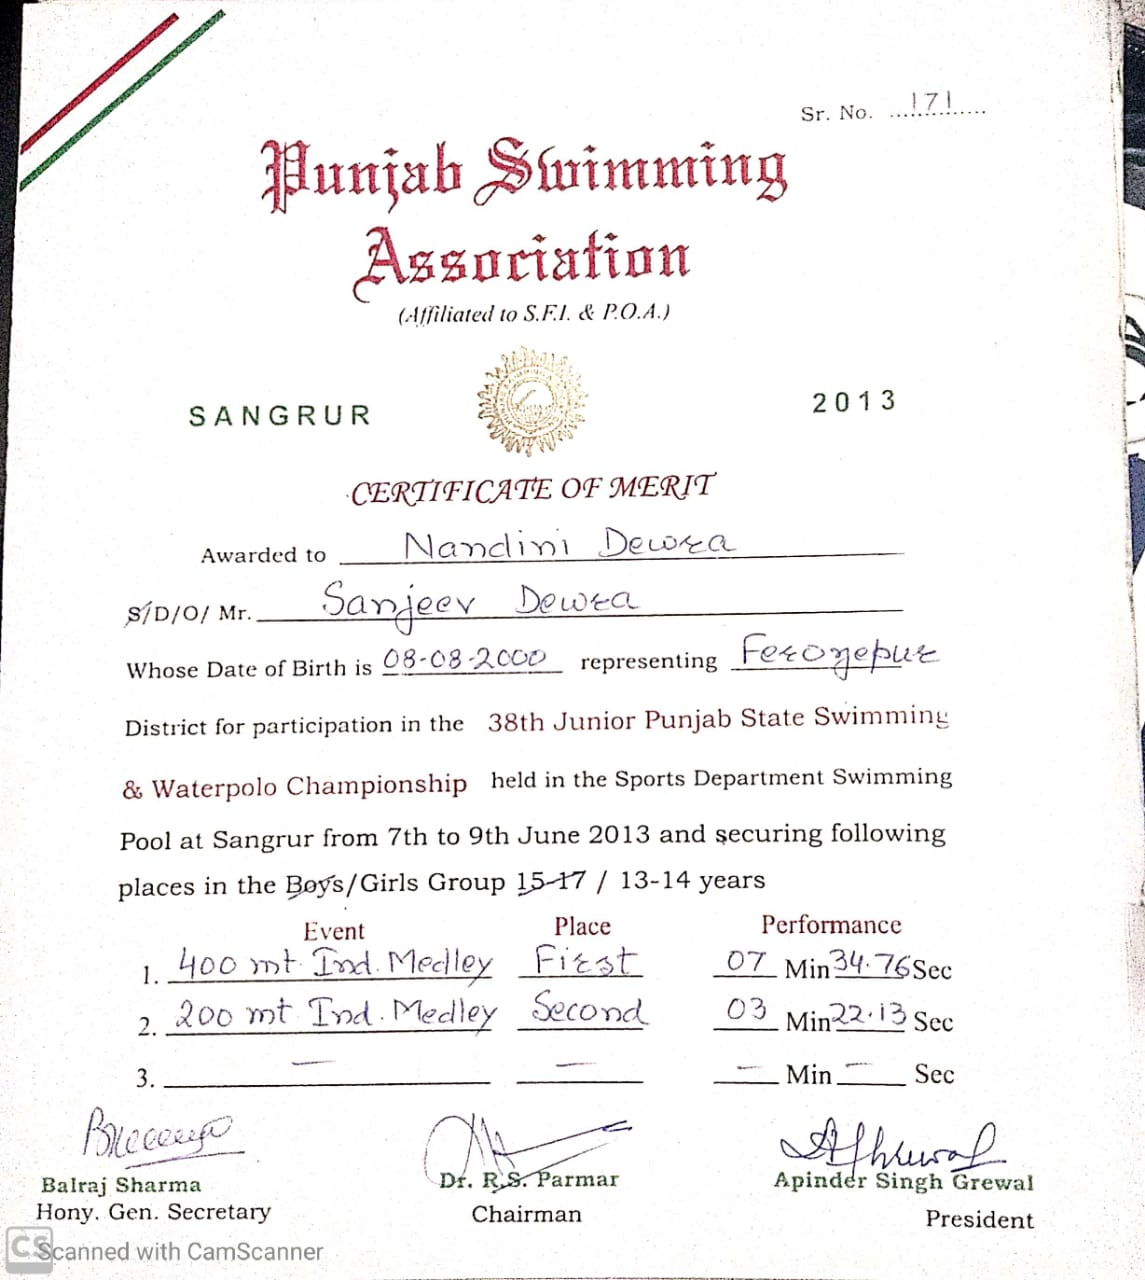 Sr. No. ...171......
Punjab Swimming
Association
(Affiliated to S.F.I. & P.O.A.)
SANGRUR 2013
CERTIFICATE OF MERIT
Awarded to Nandini Dewra
S/D/O/ Mr. Sanjeev Dewra
Whose Date of Birth is 08-08-2000 representing Ferozepur
District for participation in the 38th Junior Punjab State Swimming
& Waterpolo Championship held in the Sports Department Swimming
Pool at Sangrur from 7th to 9th June 2013 and securing following
places in the Boys/Girls Group 15-17 / 13-14 years
Event Place Performance
1. 400 mt Ind. Medley First 07 Min 34.76 Sec
2. 200 mt Ind. Medley Second 03 Min 22.13 Sec
3. — — — Min — Sec
Balraj Sharma Dr. R.S. Parmar Apinder Singh Grewal
Hony. Gen. Secretary Chairman President
CS Scanned with CamScanner